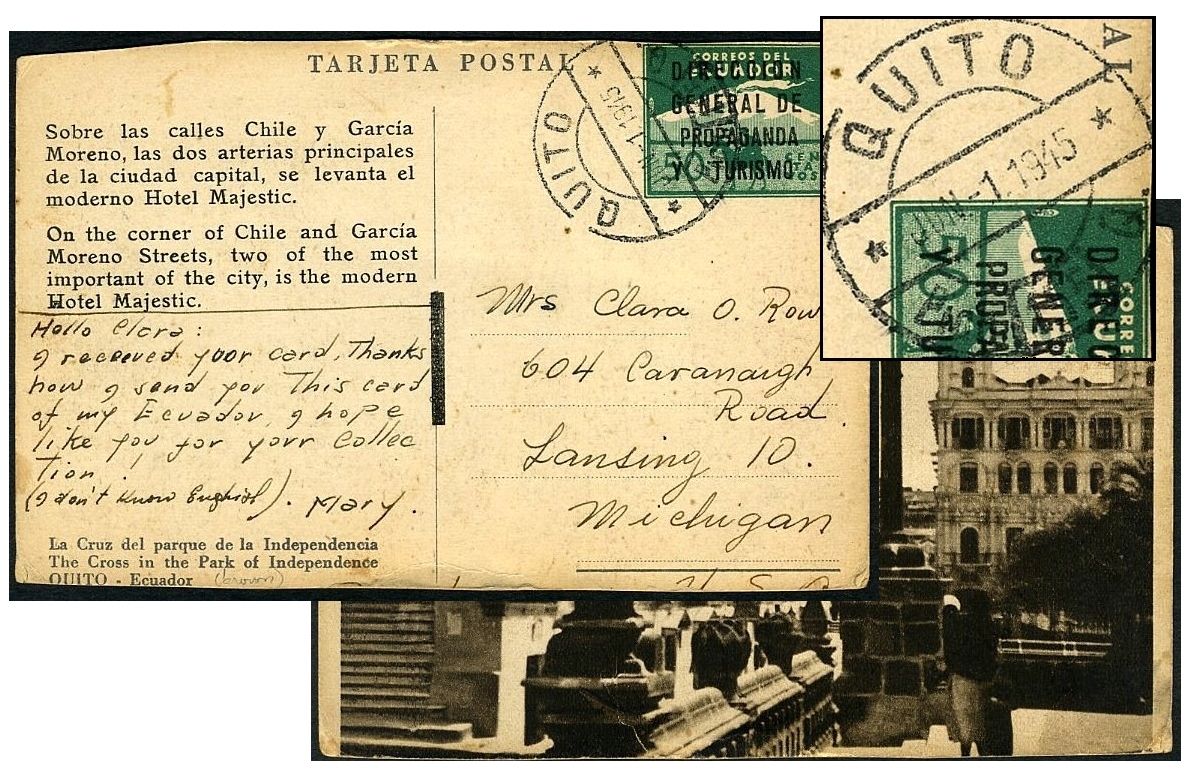 TARJETA POSTAL
Sobre las calles Chile y García
Moreno, las dos arterias principales
de la ciudad capital, se levanta el
moderno Hotel Majestic.
On the corner of Chile and García
Moreno Streets, two of the most
important of the city, is the modern
Hotel Majestic.
Hello Clara:
I receeved yoor card, Thanks
how I send yov This card
of my Ecuador, I hope
like yov for yovr Collec
tion!
(I don't know English). Mary.
La Cruz del parque de la Independencia
The Cross in the Park of Independence
QUITO - Ecuador (brown)
CORREOS DEL
ECUADOR
DIRECCION
GENERAL DE
PROPAGANDA
Y TURISMO
50
QUITO
1 1945
QUITO
Mrs Clara O. Row
604 Cavanaugh
Road
Lansing 10.
Michigan
U S A
AL
QUITO
-1.1945
50
CORRE
GENER
PROPA
Y TU